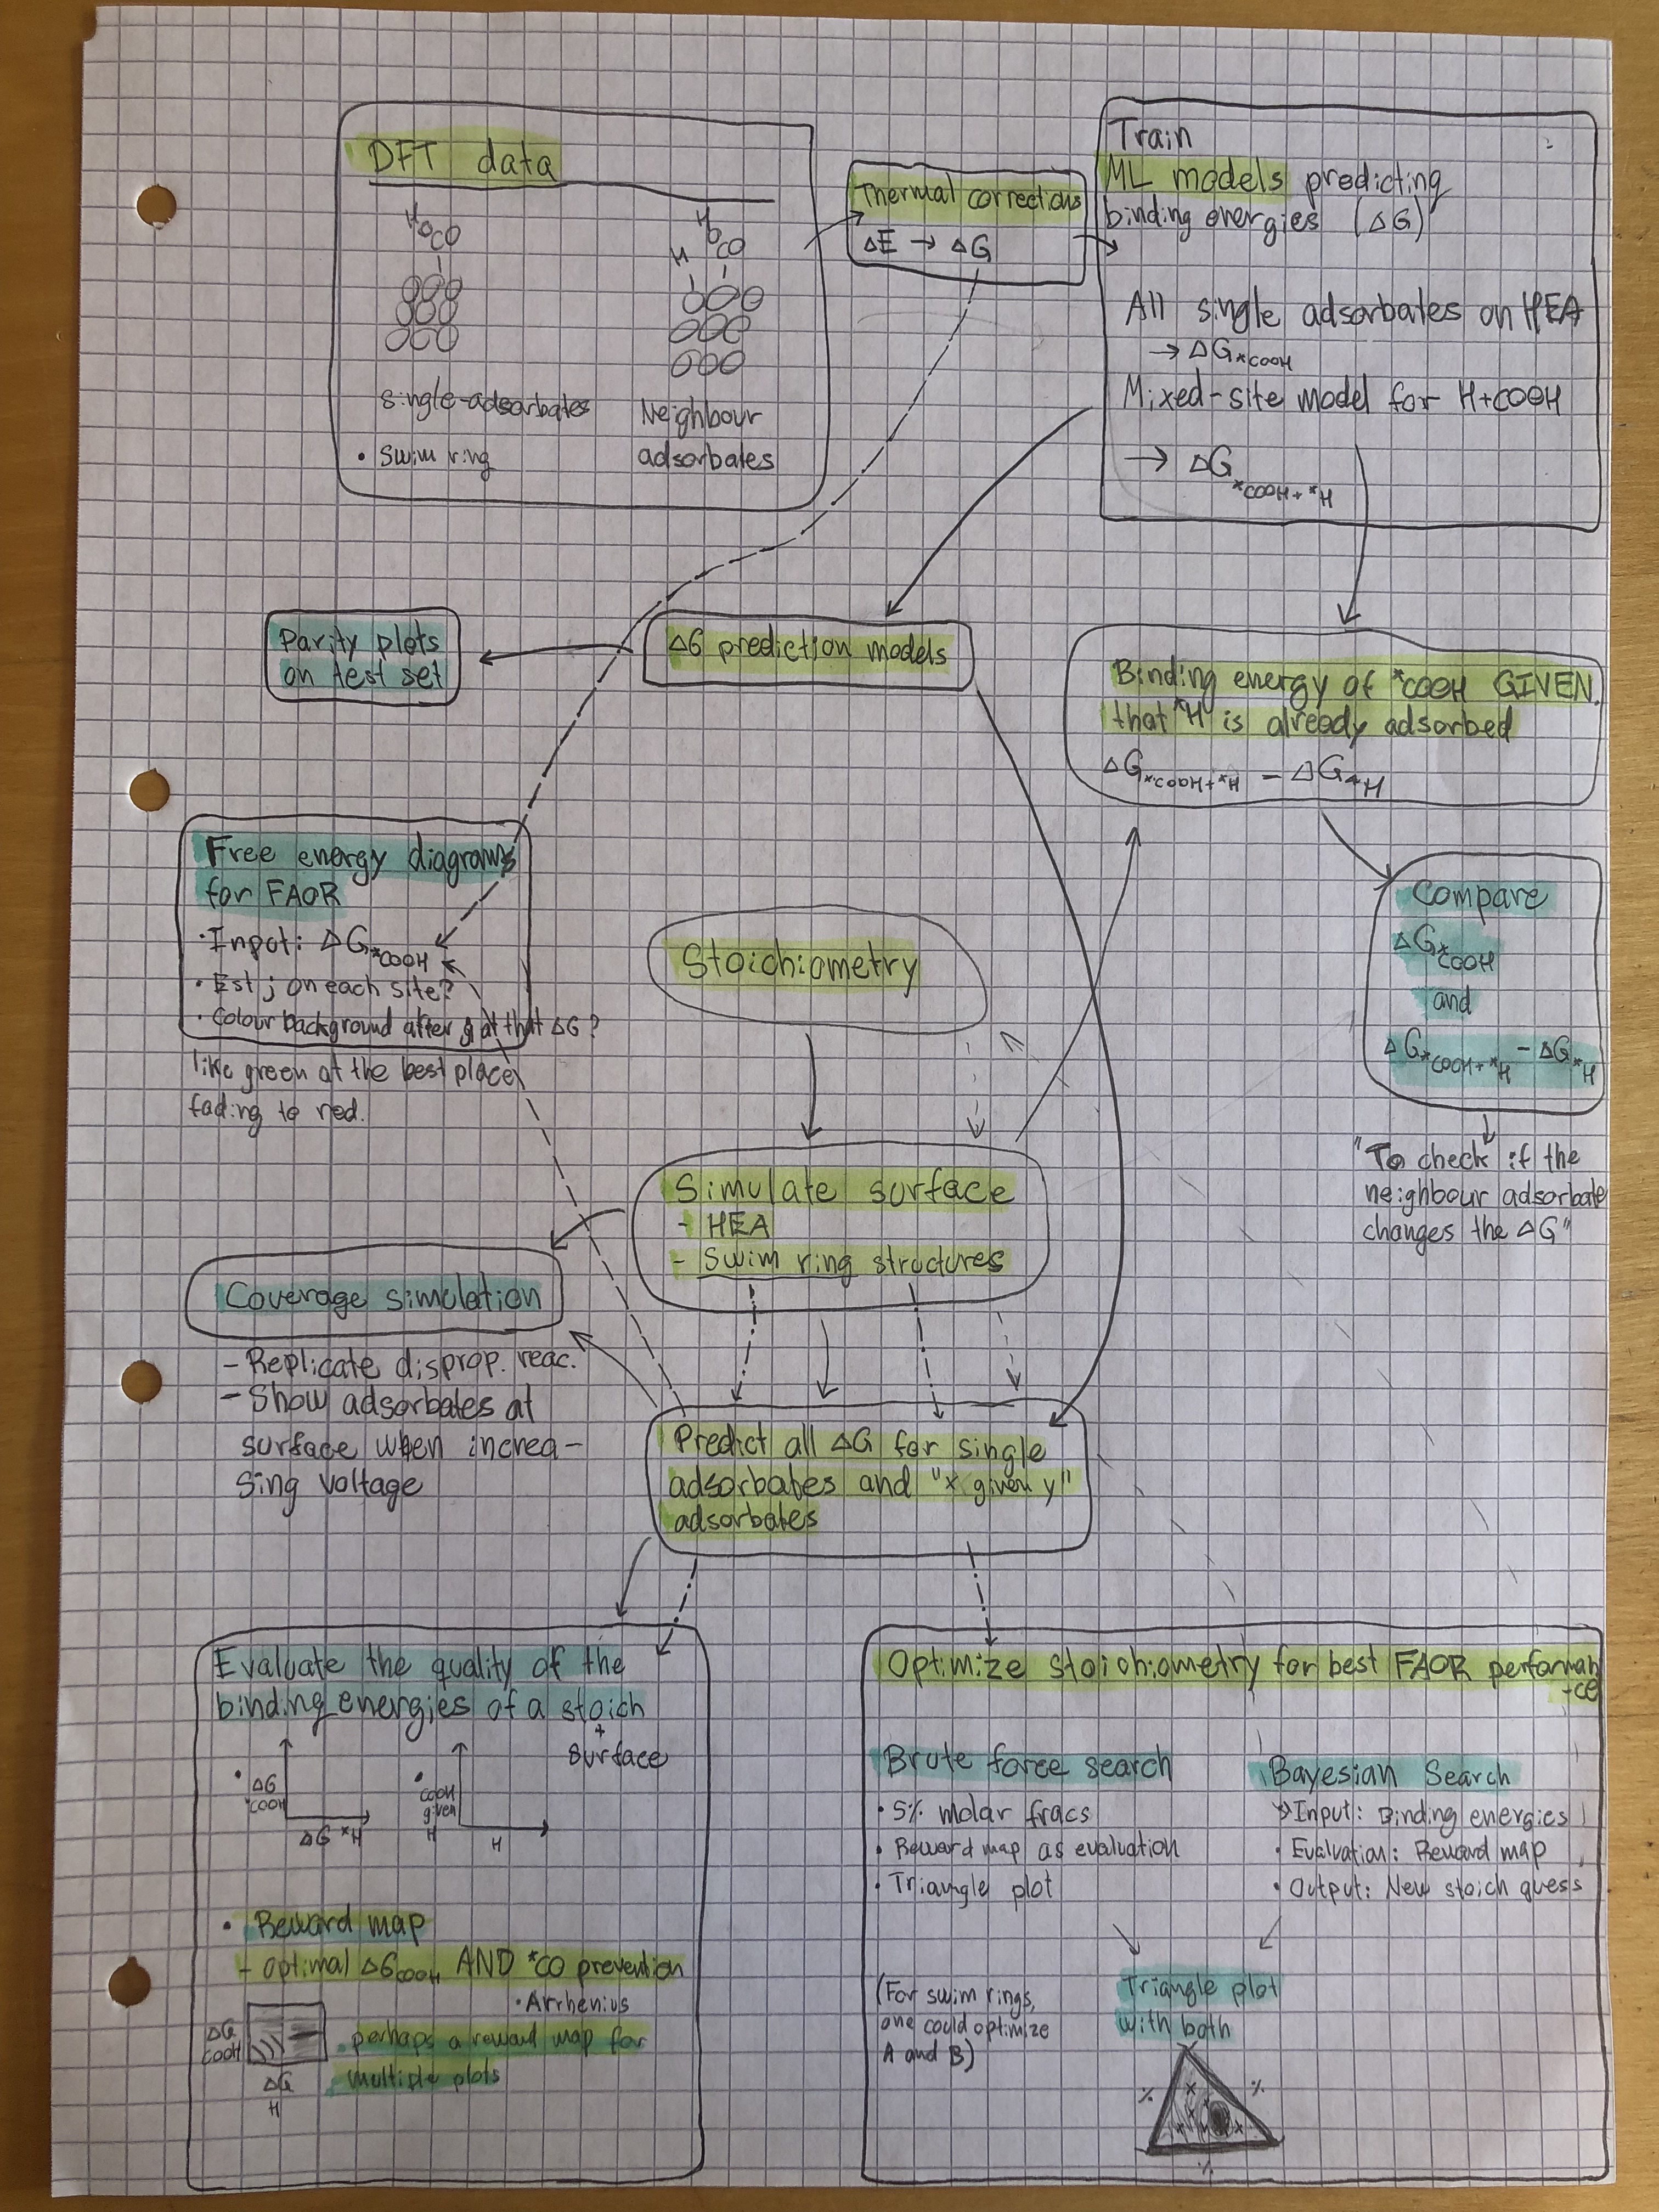 DFT data
HOCO
H
HOCO
single-adsorbates
• Swim ring
Neighbour
adsorbates
Thermal corrections
ΔE → ΔG
Train
ML models predicting
binding energies (ΔG)
All single adsorbates on HEA
→ ΔG*COOH
Mixed-site model for H+COOH
→ ΔG*COOH + *H
Parity plots
on test set
ΔG prediction models
Binding energy of *COOH GIVEN
that *H is already adsorbed
ΔG*COOH+*H − ΔG*H
Free energy diagrams
for FAOR
• Input: ΔG*COOH
• Est j on each site?
• Colour background after j at that ΔG?
like green at the best place
fading to red.
Stoichiometry
Compare
ΔG*COOH
and
ΔG*COOH+*H − ΔG*H
"To check if the
neighbour adsorbate
changes the ΔG"
Simulate surface
- HEA
- Swim ring structures
Coverage simulation
- Replicate disprop. reac.
- Show adsorbates at
surface when increa-
sing voltage
Predict all ΔG for single
adsorbates and "x given y"
adsorbates
Evaluate the quality of the
binding energies of a stoich
+
surface
• ΔG
*COOH
ΔG *H
• COOH
given
H
H
• Reward map
- optimal ΔGCOOH AND *CO prevention
• Arrhenius
ΔG
COOH
ΔG
H
• perhaps a reward map for
multiple plots
Optimize stoichiometry for best FAOR performan
-ce
Brute force search
• 5% molar fracs
• Reward map as evaluation
• Triangle plot
Bayesian Search
• Input: Binding energies
• Evaluation: Reward map
• Output: New stoich guess
(For swim rings,
one could optimize
A and B)
Triangle plot
with both
%
%
%